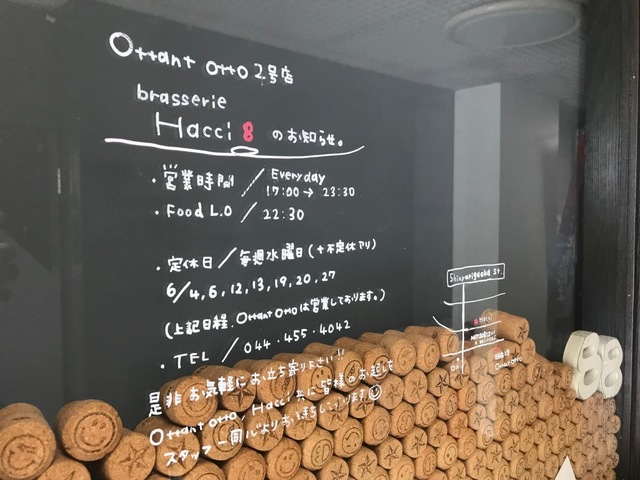 Ottant otto 2号店
brasserie
Hacci 8 のお知らせ。
・営業時間 / Everyday
17:00 → 23:30
・Food L.O / 22:30
・定休日 / 毎週水曜日(+不定休アリ)
6/4, 6, 12, 13, 19, 20, 27
(上記日程、Ottant Ottoは営業しております。)
・TEL / 044・455・4042
是非お気軽にお立ち寄り下さい!!
Ottant otto, Hacci 共に皆様のお越しを
スタッフ一同心よりお待ちしております
Shinyurigaoka St.
Hacci
Ottant Otto
88